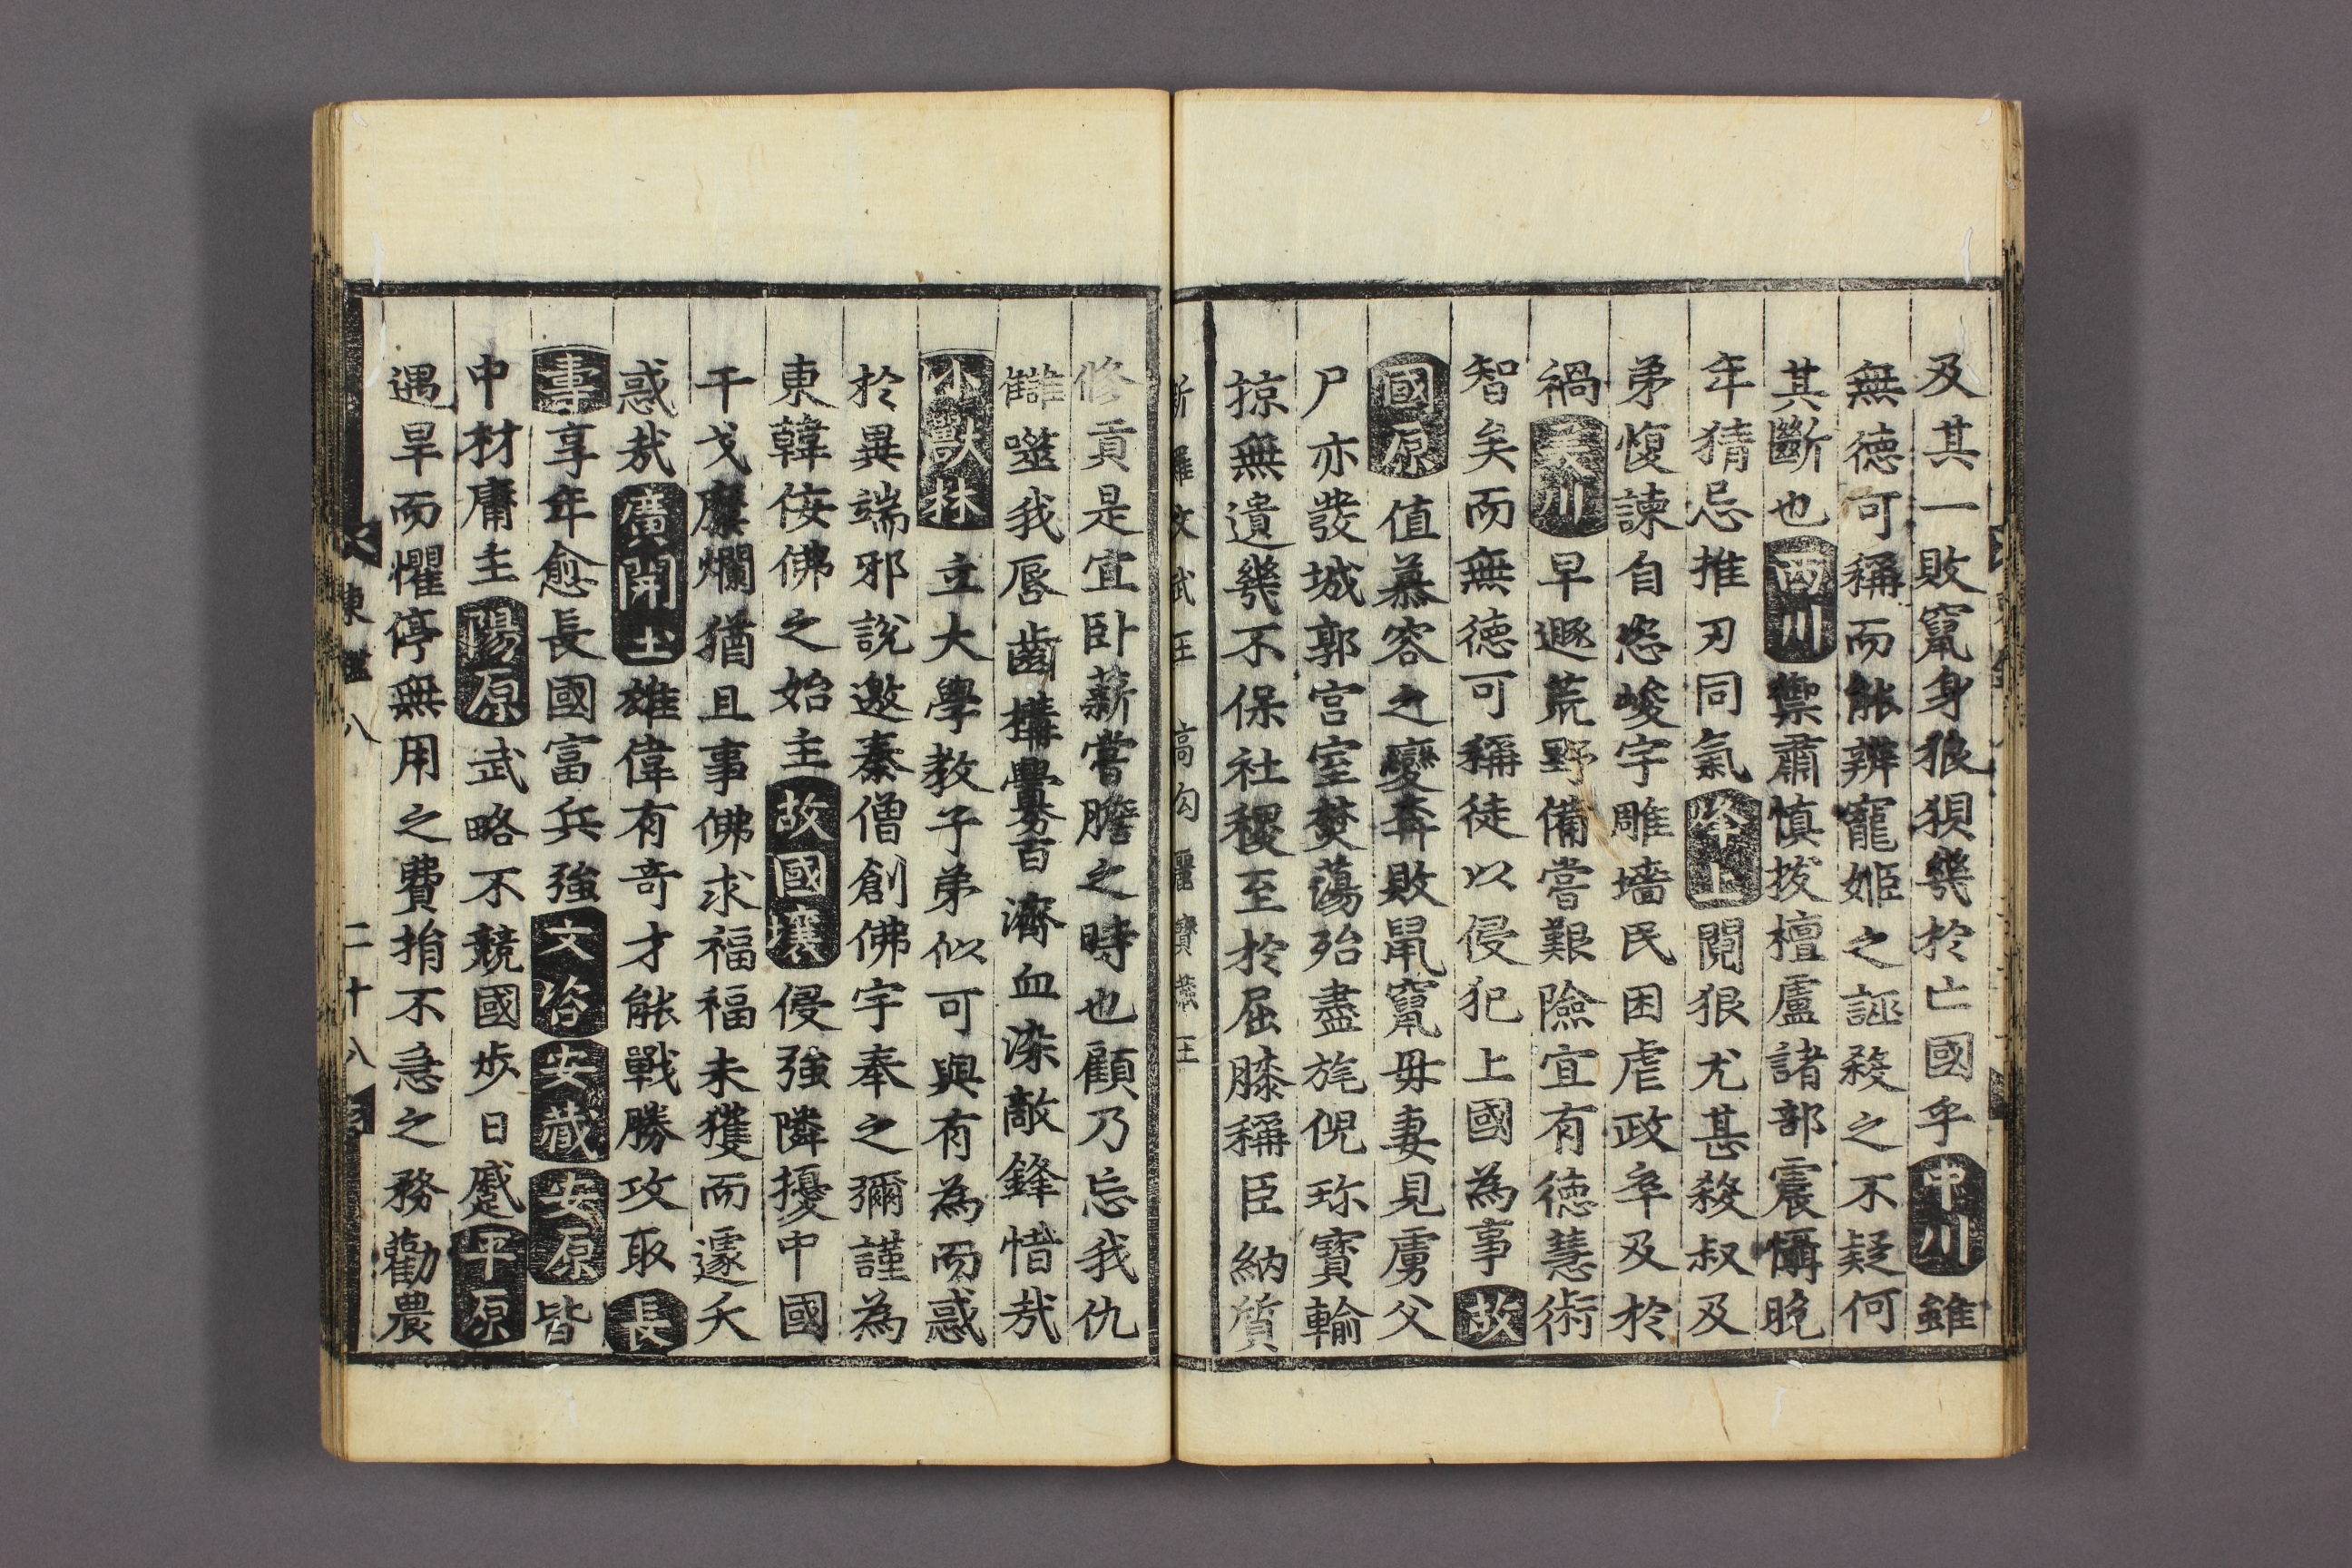 及其一敗竄身狼狽幾於亡國乎中川雖
無德可稱而能辨寵姬之誣殺之不疑何
其斷也西川禦肅愼拔檀盧諸部震懾晩
年猜忌推刃同氣烽上閱狠尤甚殺叔及
弟愎諫自恣峻宇雕墻民困虐政卒及於
禍美川早遯荒野備嘗艱險宜有德慧術
智矣而無德可稱徒以侵犯上國為事故
國原值慕容之變奔敗鼠竄毋妻見虜父
尸亦發城郭宮室焚蕩殆盡旄倪珎寶輸
掠無遺幾不保社稷至於屈膝稱臣納質
新羅文武王 高句麗寶藏王
修貢是宜卧薪嘗膽之時也顧乃忘我仇
讎噬我唇齒搆釁百濟血染敵鋒惜哉
小獸林立大學教子弟似可與有為而惑
於異端邪說邀秦僧創佛宇奉之彌謹為
東韓侫佛之始主故國壤侵強隣擾中國
干戈糜爛猶且事佛求福福未獲而遽夭
惑哉廣開土雄偉有奇才能戰勝攻取長
壽享年愈長國富兵強文咨安藏安原皆
中材庸主陽原武略不競國步日蹙平原
遇旱而懼停無用之費捐不急之務勸農
東鑑八 二十八